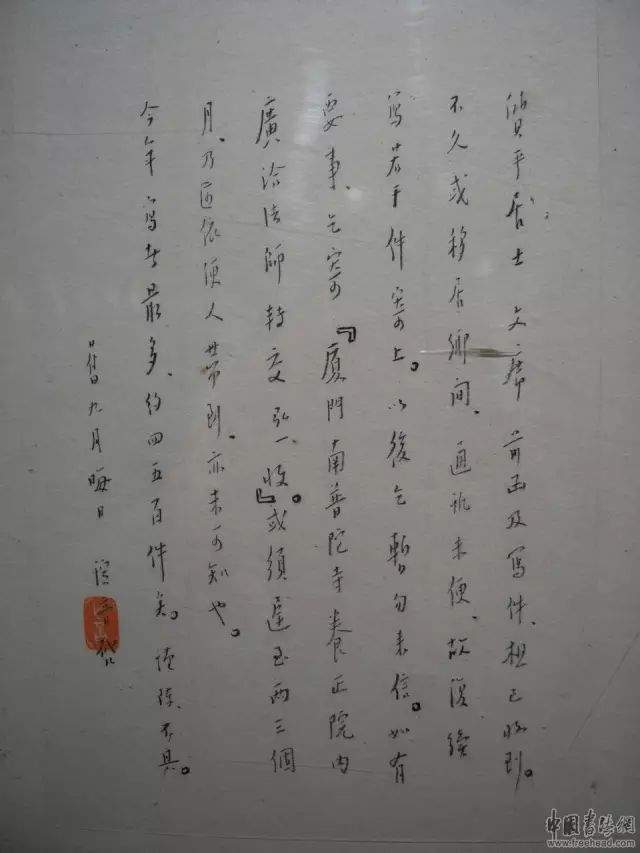 質平居士 文席 前函及寫件、想已收到。
不久或移居鄉間、通訊未便、故復續
寫若干件寄上。以後乞暫勿来信。如有
要事、乞寄『廈門南普陀寺養正院内
廣洽法師轉交弘一收』。或須遲至兩三個
月、乃依便人帶到、亦未可知也。
今年寫最多、約四五百件矣。謹陳、不具。
舊九月晦日 演音啓
中國書法網
www.freehead.com